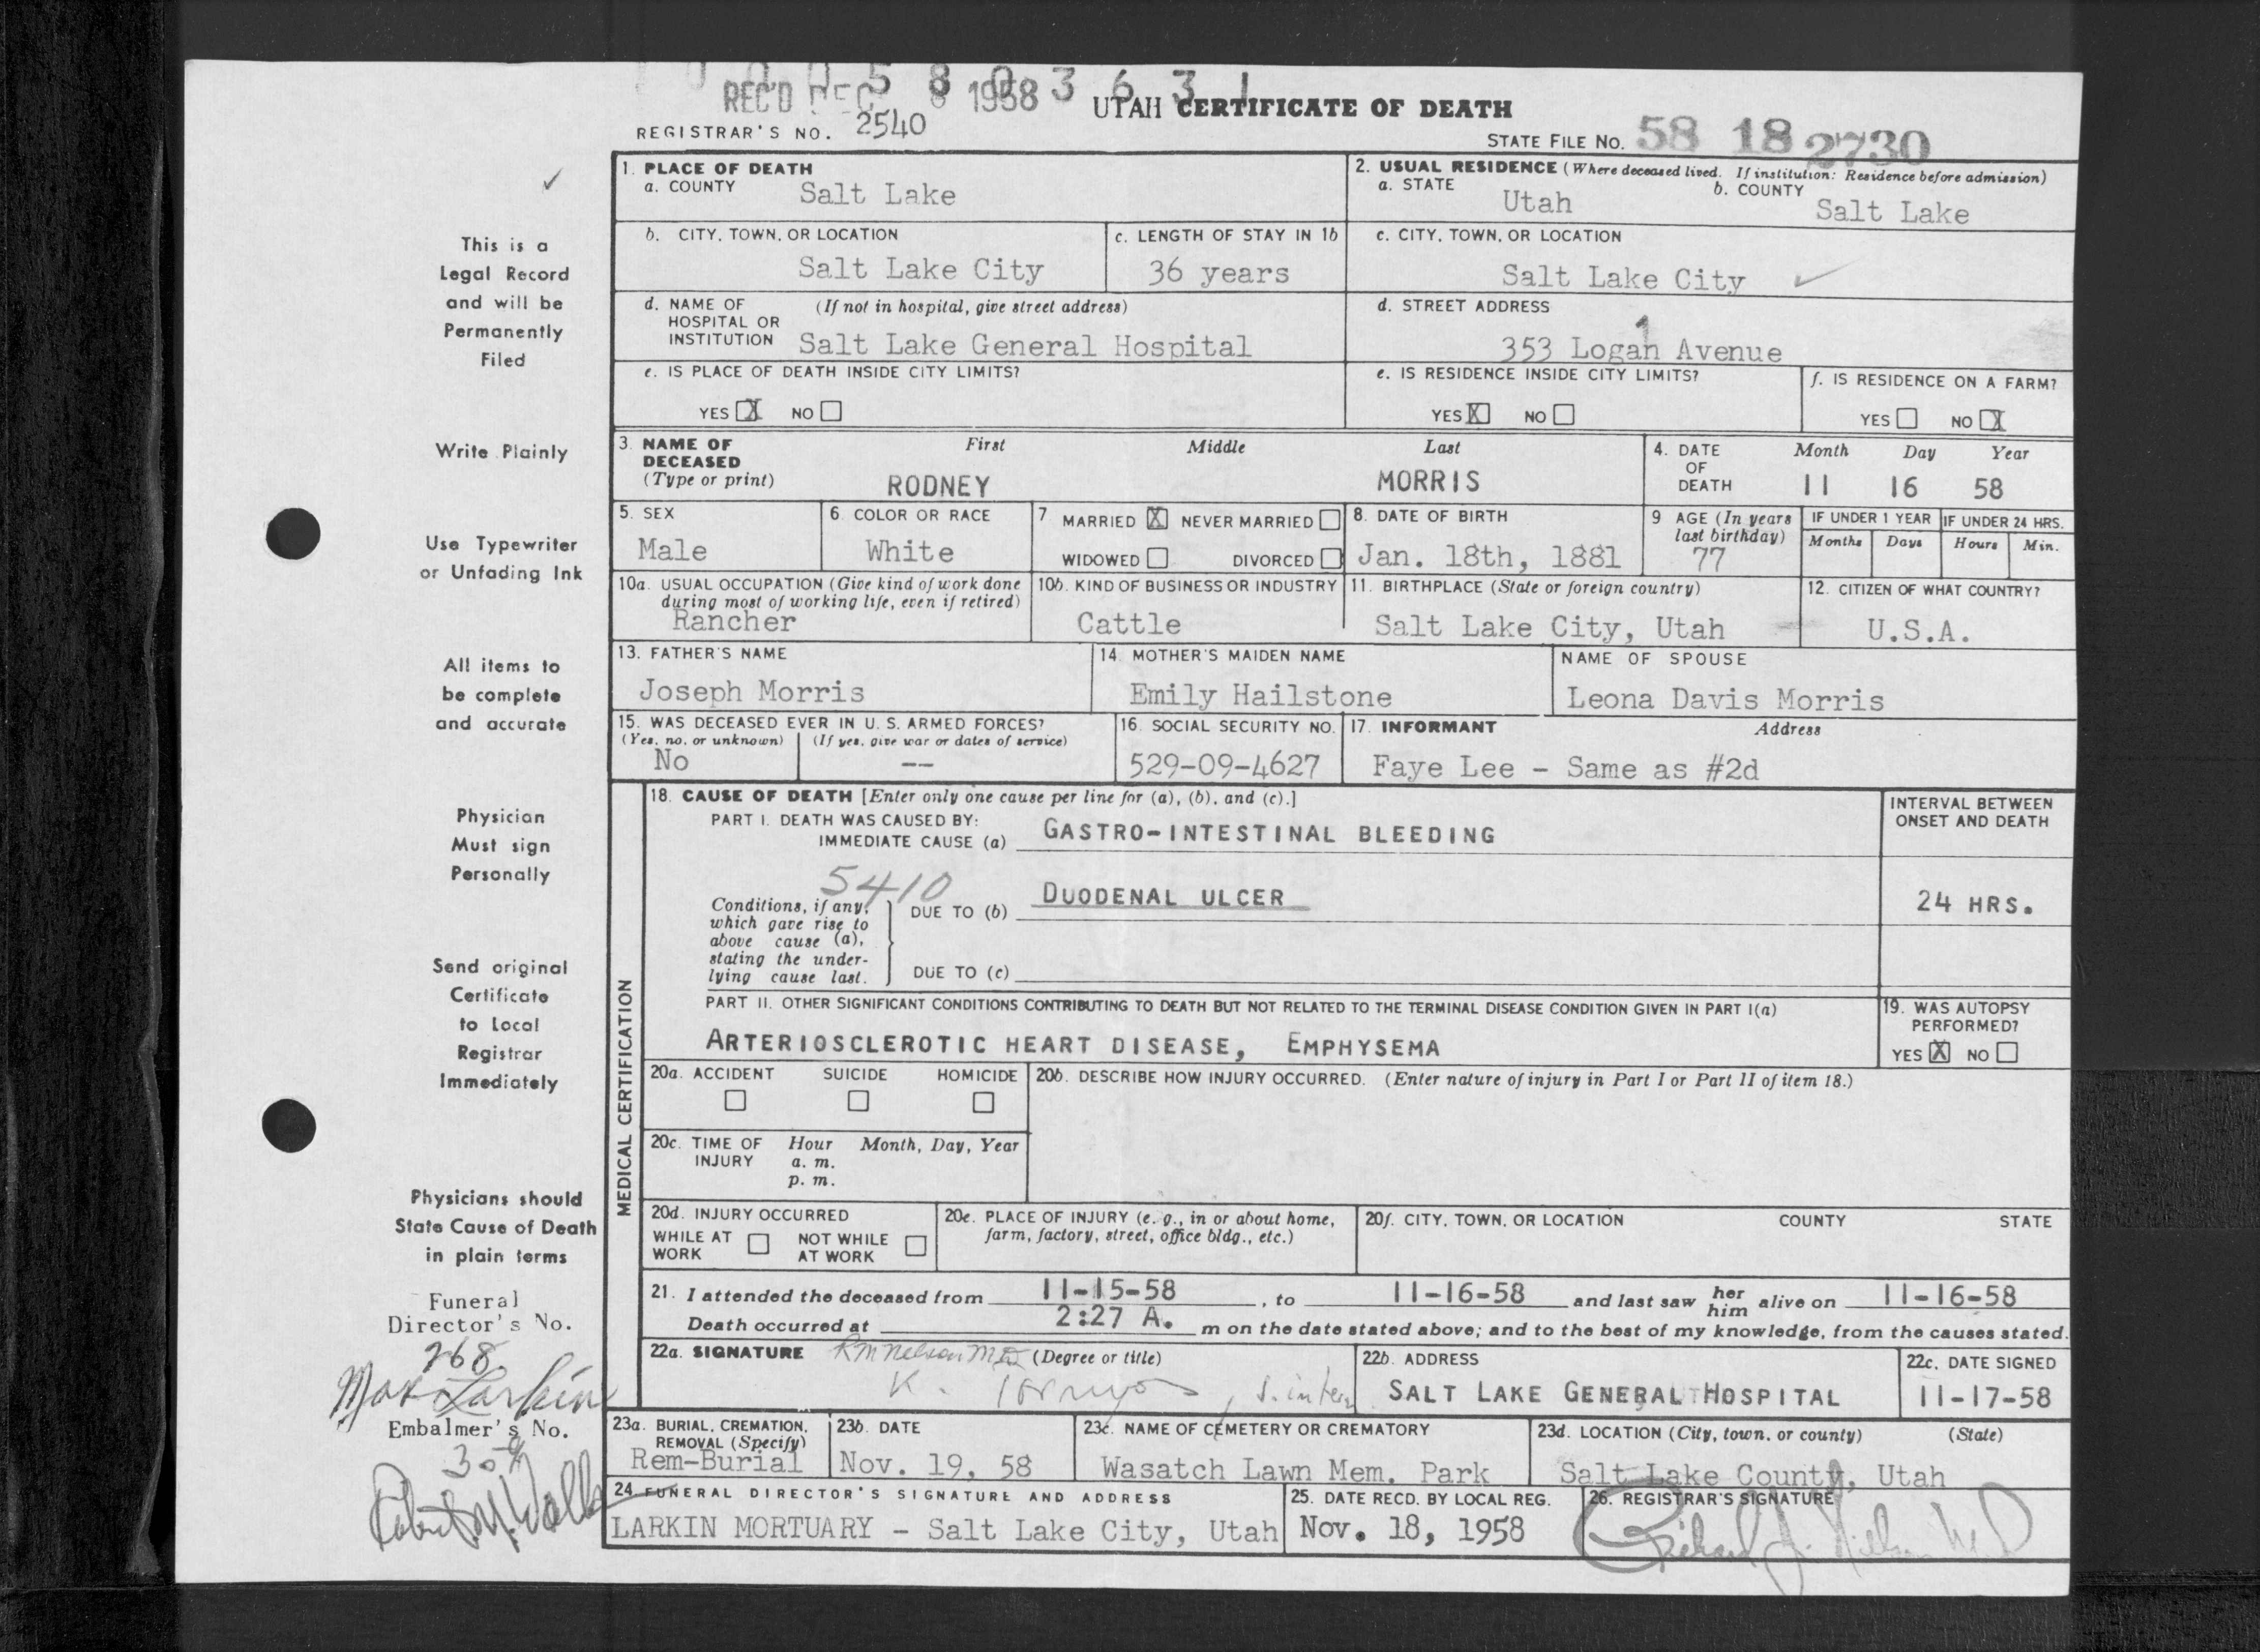 0 0 0 5 8 0 3 6 3 1
REC'D DEC 8 1958
UTAH CERTIFICATE OF DEATH
REGISTRAR'S NO. 2540
STATE FILE NO. 58 18 2730
1. PLACE OF DEATH
a. COUNTY Salt Lake
2. USUAL RESIDENCE (Where deceased lived. If institution: Residence before admission)
a. STATE Utah b. COUNTY Salt Lake
b. CITY, TOWN, OR LOCATION Salt Lake City
c. LENGTH OF STAY IN 1b 36 years
c. CITY, TOWN, OR LOCATION Salt Lake City ✓
d. NAME OF HOSPITAL OR INSTITUTION (If not in hospital, give street address) Salt Lake General Hospital
d. STREET ADDRESS 353 Logan Avenue
1
e. IS PLACE OF DEATH INSIDE CITY LIMITS?
YES X NO
e. IS RESIDENCE INSIDE CITY LIMITS?
YES X NO
f. IS RESIDENCE ON A FARM?
YES NO X
3. NAME OF DECEASED (Type or print) First Middle Last
RODNEY MORRIS
4. DATE OF DEATH Month Day Year
11 16 58
5. SEX Male
6. COLOR OR RACE White
7 MARRIED X NEVER MARRIED
WIDOWED DIVORCED
8. DATE OF BIRTH Jan. 18th, 1881
9 AGE (In years last birthday) 77
IF UNDER 1 YEAR Months Days
IF UNDER 24 HRS. Hours Min.
10a. USUAL OCCUPATION (Give kind of work done during most of working life, even if retired) Rancher
10b. KIND OF BUSINESS OR INDUSTRY Cattle
11. BIRTHPLACE (State or foreign country) Salt Lake City, Utah
12. CITIZEN OF WHAT COUNTRY? U.S.A.
13. FATHER'S NAME Joseph Morris
14. MOTHER'S MAIDEN NAME Emily Hailstone
NAME OF SPOUSE Leona Davis Morris
15. WAS DECEASED EVER IN U. S. ARMED FORCES?
(Yes, no, or unknown) (If yes, give war or dates of service)
No --
16. SOCIAL SECURITY NO. 529-09-4627
17. INFORMANT Address
Faye Lee - Same as #2d
MEDICAL CERTIFICATION
18. CAUSE OF DEATH [Enter only one cause per line for (a), (b), and (c).]
INTERVAL BETWEEN ONSET AND DEATH
PART I. DEATH WAS CAUSED BY:
IMMEDIATE CAUSE (a) GASTRO-INTESTINAL BLEEDING
5410
Conditions, if any, which gave rise to above cause (a), stating the underlying cause last.
DUE TO (b) DUODENAL ULCER
24 HRS.
DUE TO (c)
PART II. OTHER SIGNIFICANT CONDITIONS CONTRIBUTING TO DEATH BUT NOT RELATED TO THE TERMINAL DISEASE CONDITION GIVEN IN PART I(a)
ARTERIOSCLEROTIC HEART DISEASE, EMPHYSEMA
19. WAS AUTOPSY PERFORMED?
YES X NO
20a. ACCIDENT SUICIDE HOMICIDE
20b. DESCRIBE HOW INJURY OCCURRED. (Enter nature of injury in Part I or Part II of item 18.)
20c. TIME OF INJURY Hour Month, Day, Year
a. m.
p. m.
20d. INJURY OCCURRED
WHILE AT WORK NOT WHILE AT WORK
20e. PLACE OF INJURY (e. g., in or about home, farm, factory, street, office bldg., etc.)
20f. CITY, TOWN, OR LOCATION COUNTY STATE
21. I attended the deceased from 11-15-58, to 11-16-58 and last saw her him alive on 11-16-58
Death occurred at 2:27 A. m on the date stated above; and to the best of my knowledge, from the causes stated.
22a. SIGNATURE RM Nelson MD (Degree or title)
K.
22b. ADDRESS SALT LAKE GENERAL HOSPITAL
22c. DATE SIGNED 11-17-58
23a. BURIAL, CREMATION, REMOVAL (Specify) Rem-Burial
23b. DATE Nov. 19, 58
23c. NAME OF CEMETERY OR CREMATORY Wasatch Lawn Mem. Park
23d. LOCATION (City, town, or county) (State)
Salt Lake County, Utah
24 FUNERAL DIRECTOR'S SIGNATURE AND ADDRESS
LARKIN MORTUARY - Salt Lake City, Utah
25. DATE RECD. BY LOCAL REG. Nov. 18, 1958
26. REGISTRAR'S SIGNATURE
✓
This is a
Legal Record
and will be
Permanently
Filed
Write Plainly
Use Typewriter
or Unfading Ink
All items to
be complete
and accurate
Physician
Must sign
Personally
Send original
Certificate
to Local
Registrar
Immediately
Physicians should
State Cause of Death
in plain terms
Funeral
Director's No.
268
Max Larkin
Embalmer's No.